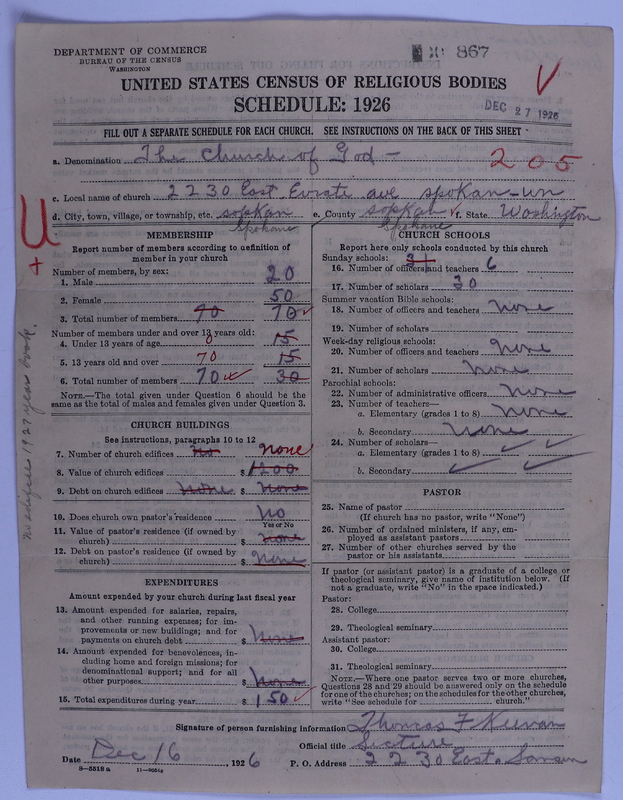 DEPARTMENT OF COMMERCE
BUREAU OF THE CENSUS
WASHINGTON
867
UNITED STATES CENSUS OF RELIGIOUS BODIES
SCHEDULE: 1926
DEC 27 1926
FILL OUT A SEPARATE SCHEDULE FOR EACH CHURCH. SEE INSTRUCTIONS ON THE BACK OF THIS SHEET
a. Denomination The Church of God — 205
c. Local name of church 2230 East ave spokan-wn
d. City, town, village, or township, etc. sopkan e. County sopkan f. State Washington
Spokane Spokane
U
+
MEMBERSHIP
Report number of members according to definition of member in your church
Number of members, by sex:
1. Male 20
2. Female 50
3. Total number of members 70 70
Number of members under and over 13 years old:
4. Under 13 years of age 0 15
5. 13 years old and over 70 15
6. Total number of members 70 30
NOTE.—The total given under Question 6 should be the same as the total of males and females given under Question 3.
CHURCH BUILDINGS
See instructions, paragraphs 10 to 12
7. Number of church edifices no none
8. Value of church edifices $ 1200
9. Debt on church edifices none $ none
10. Does church own pastor's residence No
Yes or No
11. Value of pastor's residence (if owned by church) $ none
12. Debt on pastor's residence (if owned by church) $ none
No edifices 1927 year book.
EXPENDITURES
Amount expended by your church during last fiscal year
13. Amount expended for salaries, repairs, and other running expenses; for improvements or new buildings; and for payments on church debt $ none
14. Amount expended for benevolences, including home and foreign missions; for denominational support; and for all other purposes $ none
15. Total expenditures during year $ 150
CHURCH SCHOOLS
Report here only schools conducted by this church
Sunday schools:
16. Number of officers and teachers 6
17. Number of scholars 30
Summer vacation Bible schools:
18. Number of officers and teachers none
19. Number of scholars
Week-day religious schools:
20. Number of officers and teachers none
21. Number of scholars none
Parochial schools:
22. Number of administrative officers none
23. Number of teachers—
a. Elementary (grades 1 to 8) none
b. Secondary none
24. Number of scholars—
a. Elementary (grades 1 to 8)
b. Secondary
PASTOR
25. Name of pastor
(If church has no pastor, write "None")
26. Number of ordained ministers, if any, employed as assistant pastors
27. Number of other churches served by the pastor or his assistants
If pastor (or assistant pastor) is a graduate of a college or theological seminary, give name of institution below. (If not a graduate, write "No" in the space indicated.)
Pastor:
28. College
29. Theological seminary
Assistant pastor:
30. College
31. Theological seminary
NOTE.—Where one pastor serves two or more churches, Questions 28 and 29 should be answered only on the schedule for one of the churches; on the schedules for the other churches, write "See schedule for church."
Signature of person furnishing information Thomas F Keevan
Official title
Date Dec 16, 1926 P. O. Address 2230 East
8-5518 a